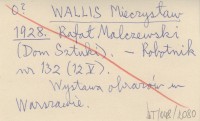 o?
WALLIS Mieczysław
1928. Rafał Malczewski
(Dom Sztuki). - Robotnik
nr 132 (12 V).
Wystawa obrazów w
Warszawie.